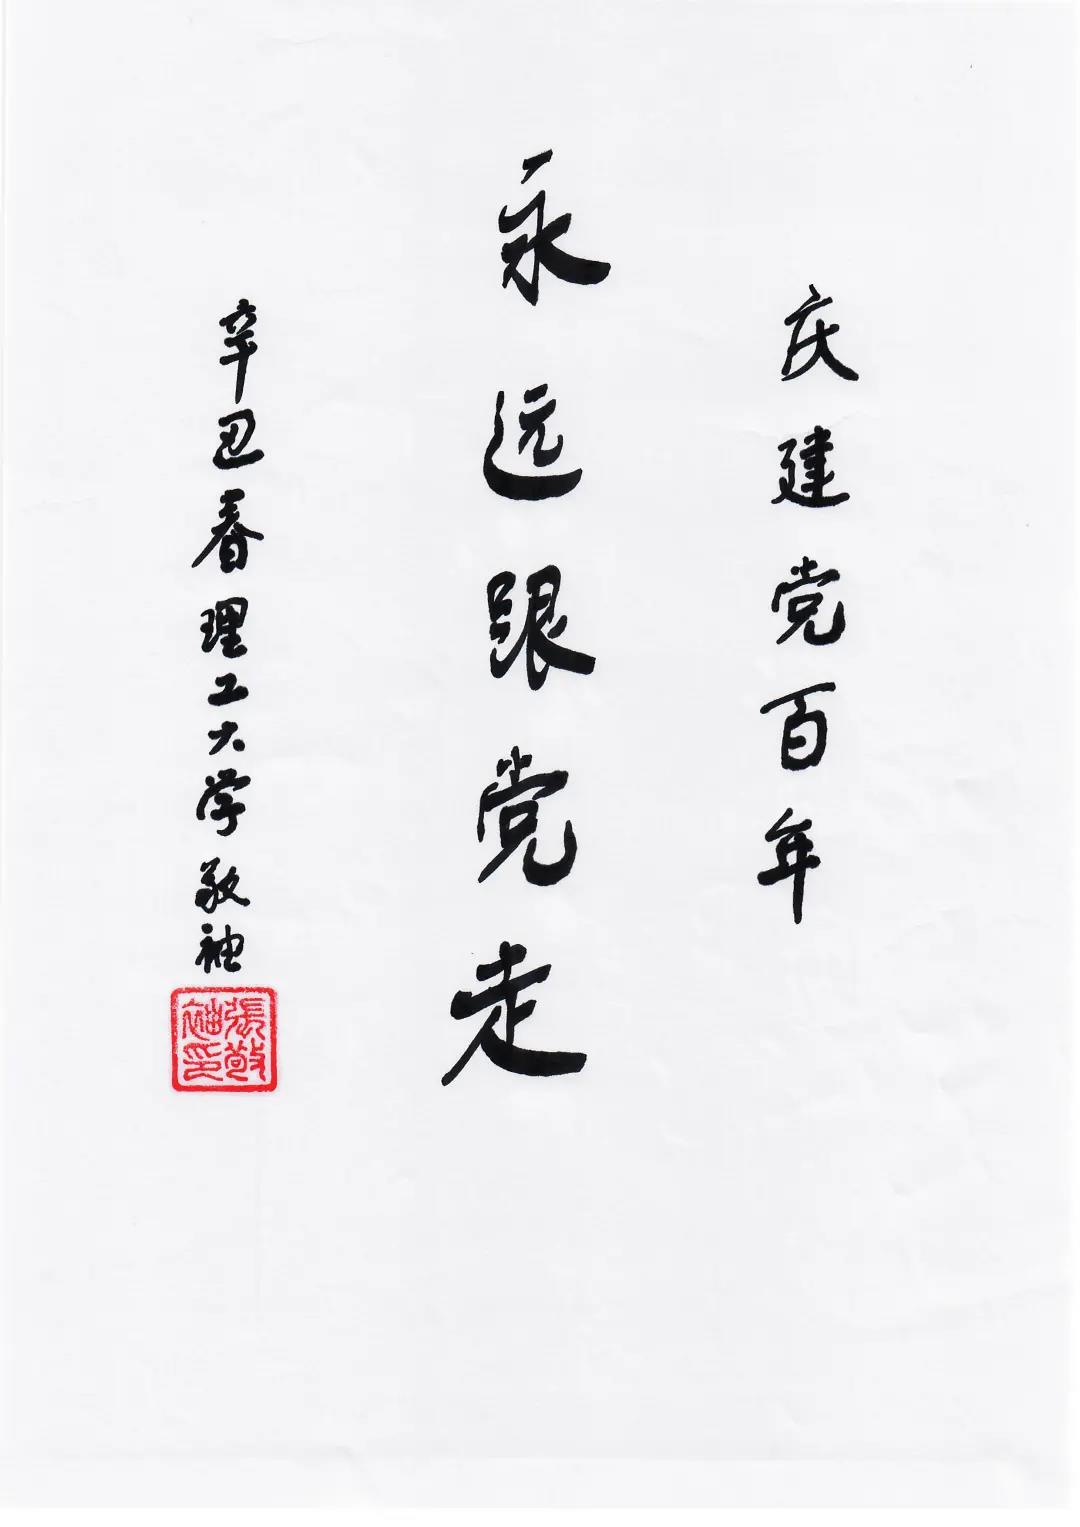 庆建党百年
永远跟党走
辛丑春理工大学敬袖
張敬
袖印